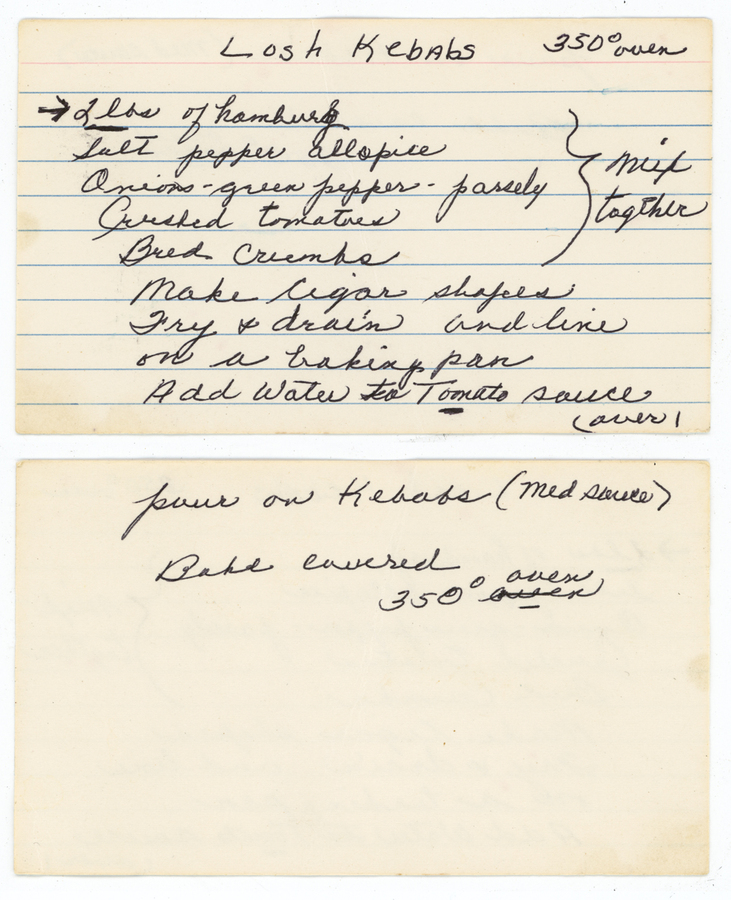 Losh Kebabs 350° oven
→ 2 lbs of hamburg
Salt pepper allspice
Onions - green pepper - parsely
Crushed tomatoes
Bred Crumbs
Mix
together
Make Cigar shapes
Fry & drain and line
on a baking pan
Add Water to Tomato sauce
(over)
pour on Kebabs (Med sauce)
Bake covered
350° oven